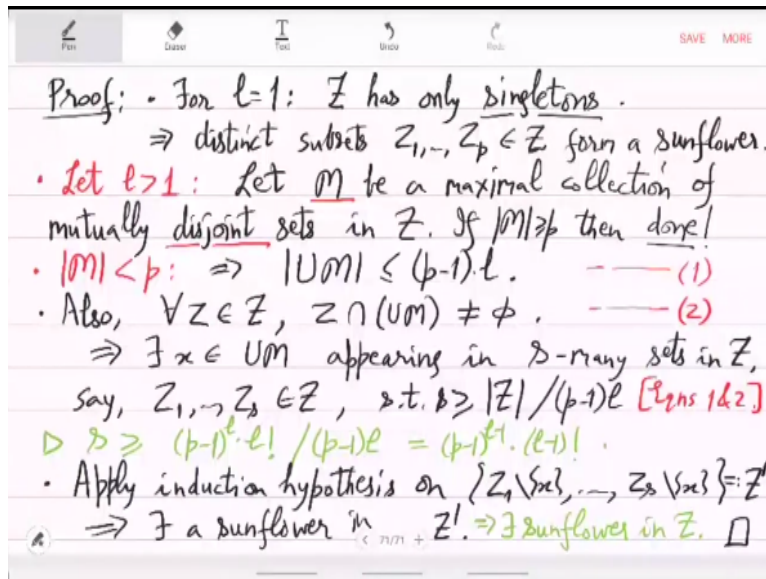 Pen Eraser Text Undo Redo SAVE MORE
Proof: · For l=1: Z has only singletons.
⇒ distinct subsets Z₁,..,Zₚ ∈ Z form a sunflower.
· Let l>1: Let M be a maximal collection of
mutually disjoint sets in Z. If |M|≥p then done!
· |M|<p: ⇒ |∪M| ≤ (p-1)·l. ——— (1)
· Also, ∀Z∈Z, Z∩(∪M) ≠ ϕ. ——— (2)
⇒ ∃x∈ ∪M appearing in s-many sets in Z,
say, Z₁,..,Zₛ ∈Z, s.t. s≥ |Z|/(p-1)l [Eqns 1&2]
▷ s ≥ (p-1)ˡ·l! /(p-1)l = (p-1)ˡ⁻¹·(l-1)!.
· Apply induction hypothesis on {Z₁\{x},..., Zₛ\{x}}=:Z'
⇒ ∃ a sunflower in Z'. ⇒∃ sunflower in Z. □
< 71/71 +